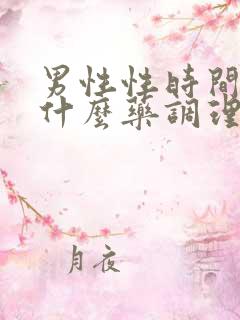 男性性時間
什麼藥調理
月夜